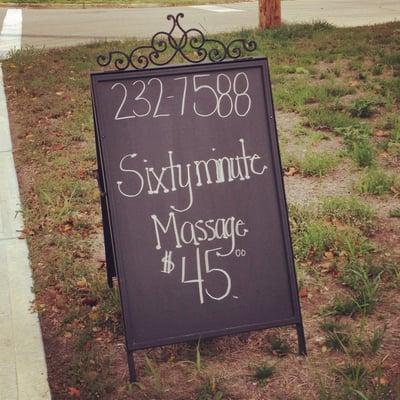 232-7588
Sixty minute
Massage
$45.00